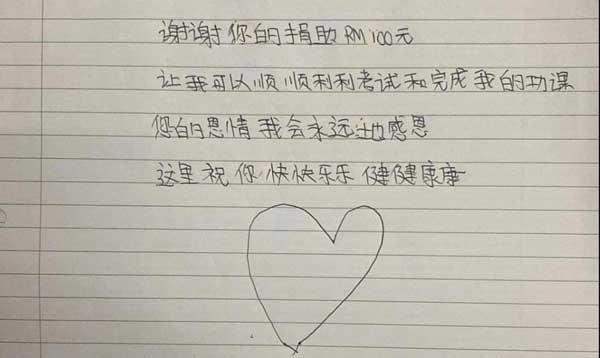 谢谢你的捐助RM100元
让我可以顺顺利利考试和完成我的功课
您的恩情我会永远地感恩
这里祝你快快乐乐健健康康